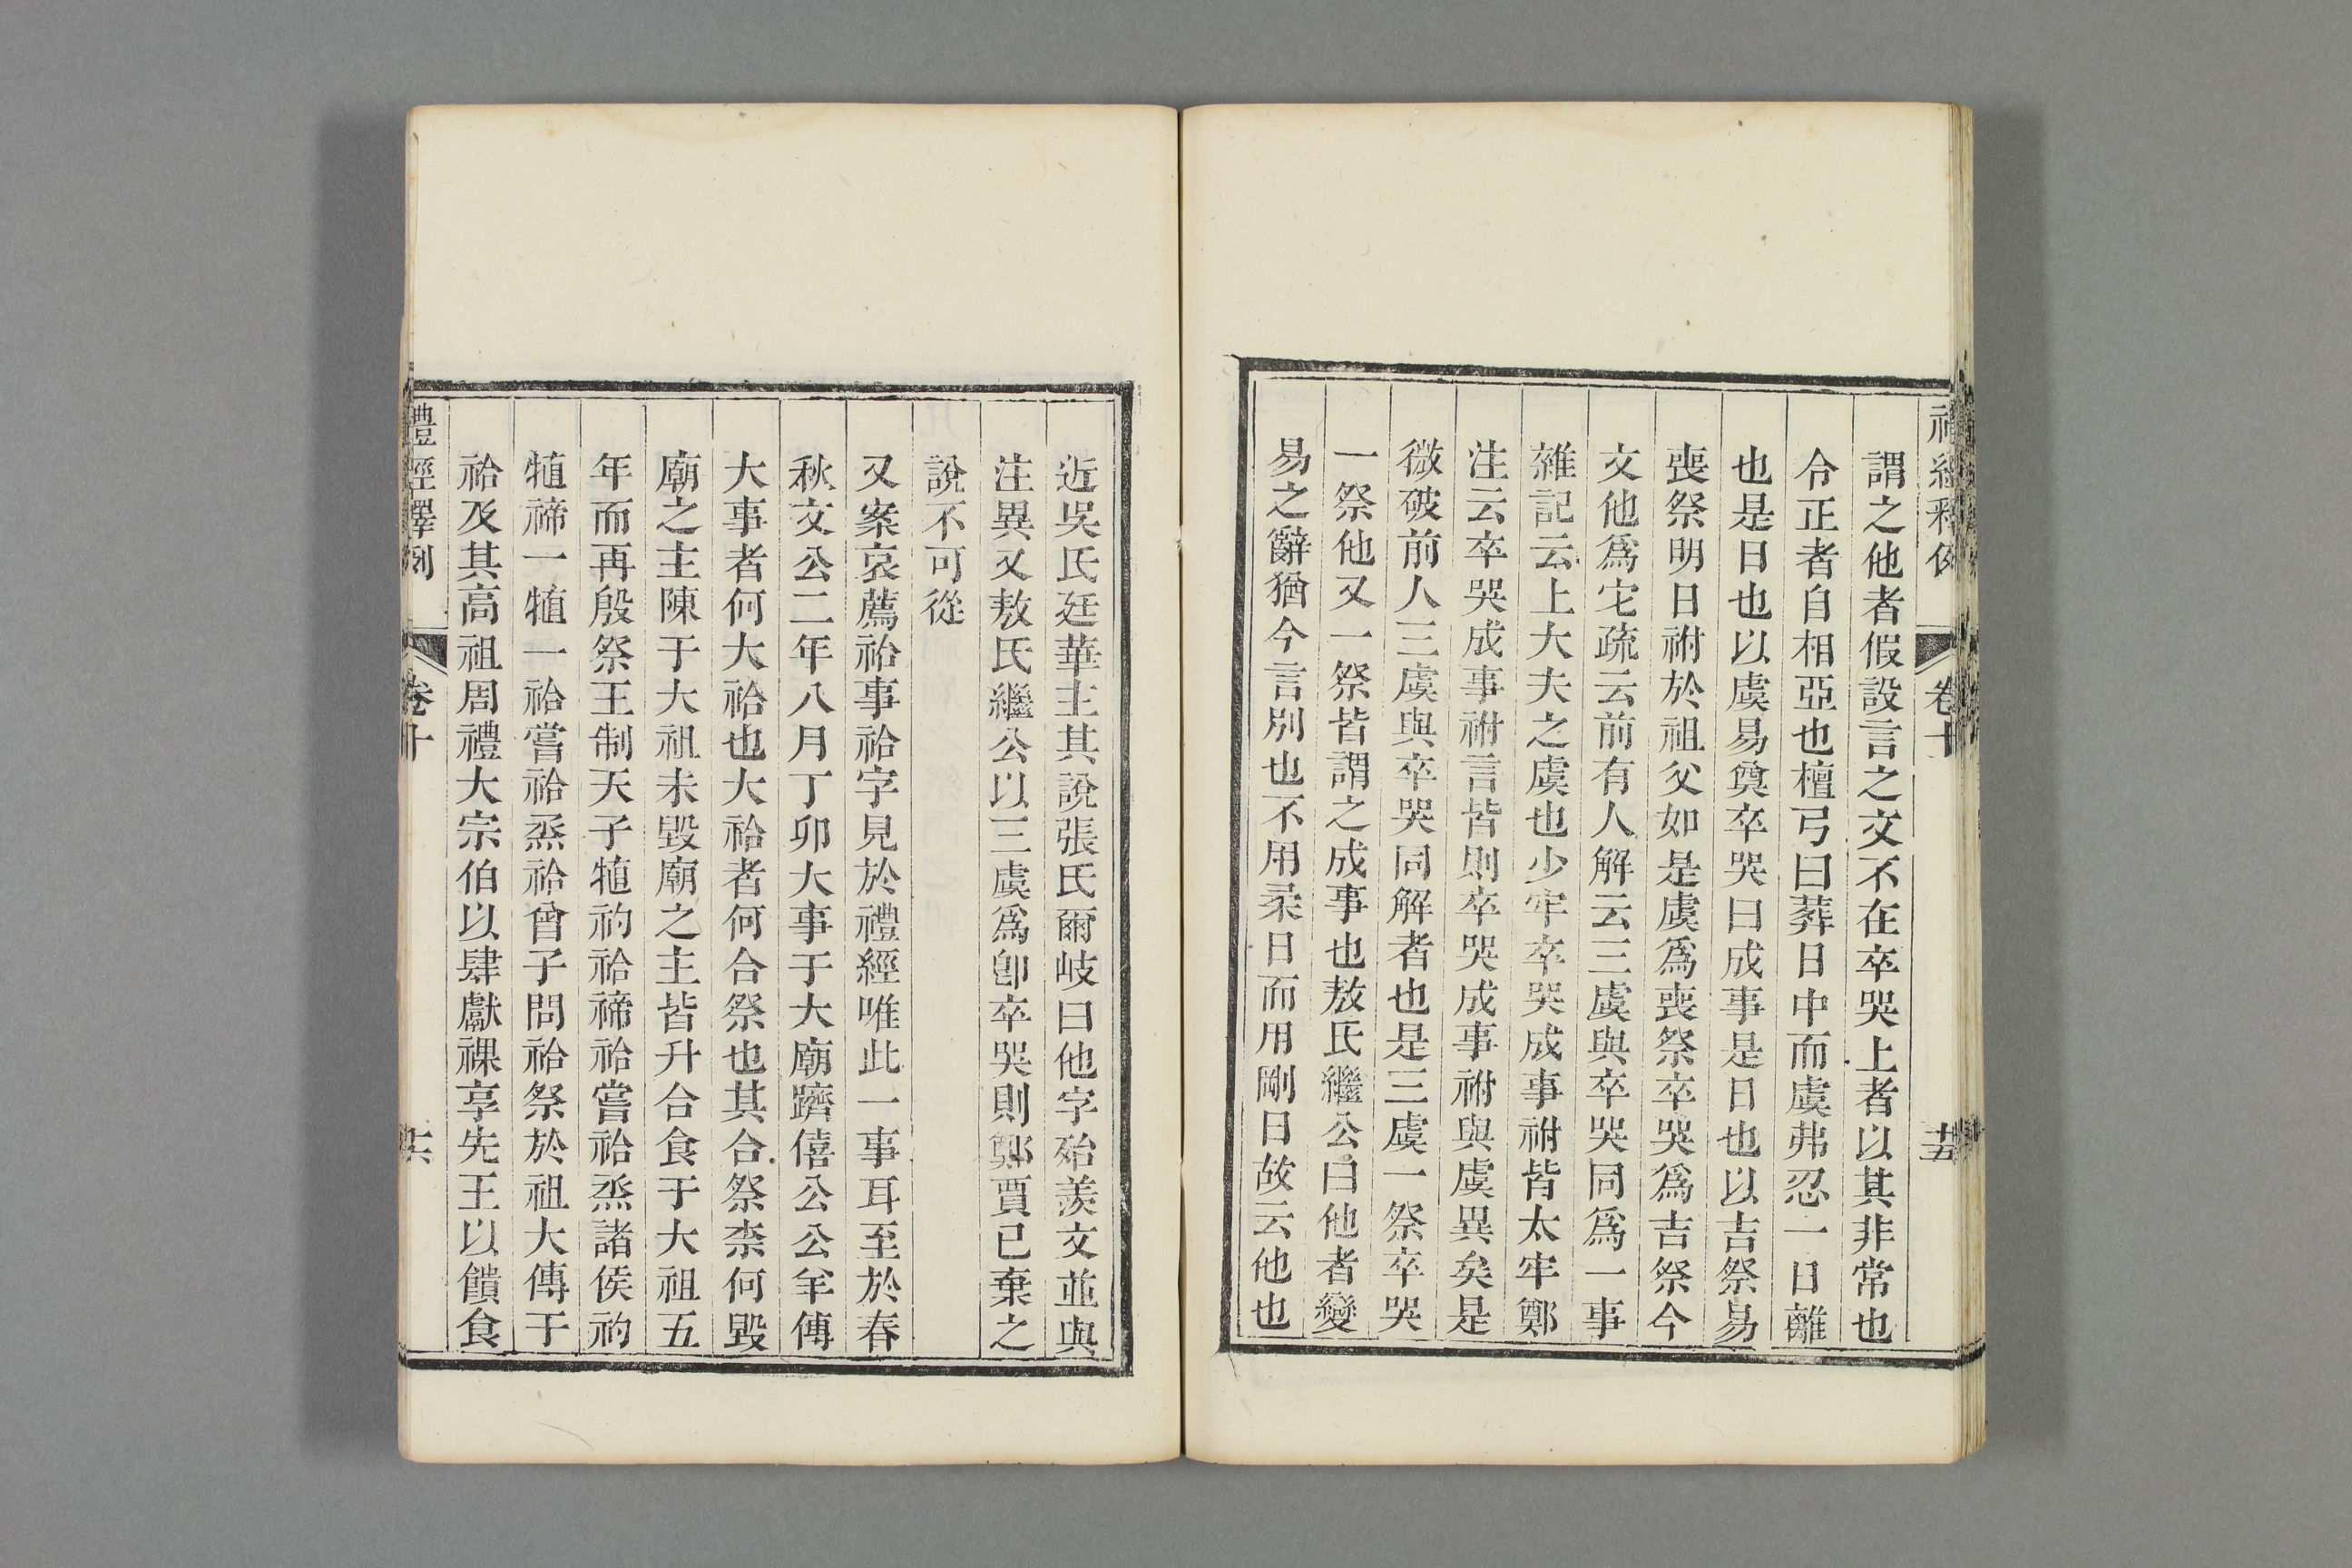 禮經釋例 卷十 十五
謂之他者假設言之文不在卒哭上者以其非常也
令正者自相亞也檀弓曰葬日中而虞弗忍一日離
也是日也以虞易奠卒哭曰成事是日也以吉祭易
喪祭明日祔於祖父如是虞爲喪祭卒哭爲吉祭今
文他爲它疏云前有人解云三虞與卒哭同爲一事
雜記云上大夫之虞也少牢卒哭成事祔皆太牢鄭
注云卒哭成事祔言皆則卒哭成事祔與虞異矣是
微破前人三虞與卒哭同解者也是三虞一祭卒哭
一祭他又一祭皆謂之成事也敖氏繼公曰他者變
易之辭猶今言別也不用柔日而用剛日故云他也
近吳氏廷華主其說張氏爾岐曰他字殆羨文並與
注異又敖氏繼公以三虞爲卽卒哭則鄭賈已棄之
說不可從
又案哀薦祫事祫字見於禮經唯此一事耳至於春
秋文公二年八月丁卯大事于大廟躋僖公公羊傳
大事者何大祫也大祫者何合祭也其合祭柰何毀
廟之主陳于大祖未毀廟之主皆升合食于大祖五
年而再殷祭王制天子犆礿祫禘祫嘗祫烝諸侯礿
犆禘一犆一祫嘗祫烝祫曾子問祫祭於祖大傳干
祫及其高祖周禮大宗伯以肆獻祼享先王以饋食
禮經釋例 卷十 十六